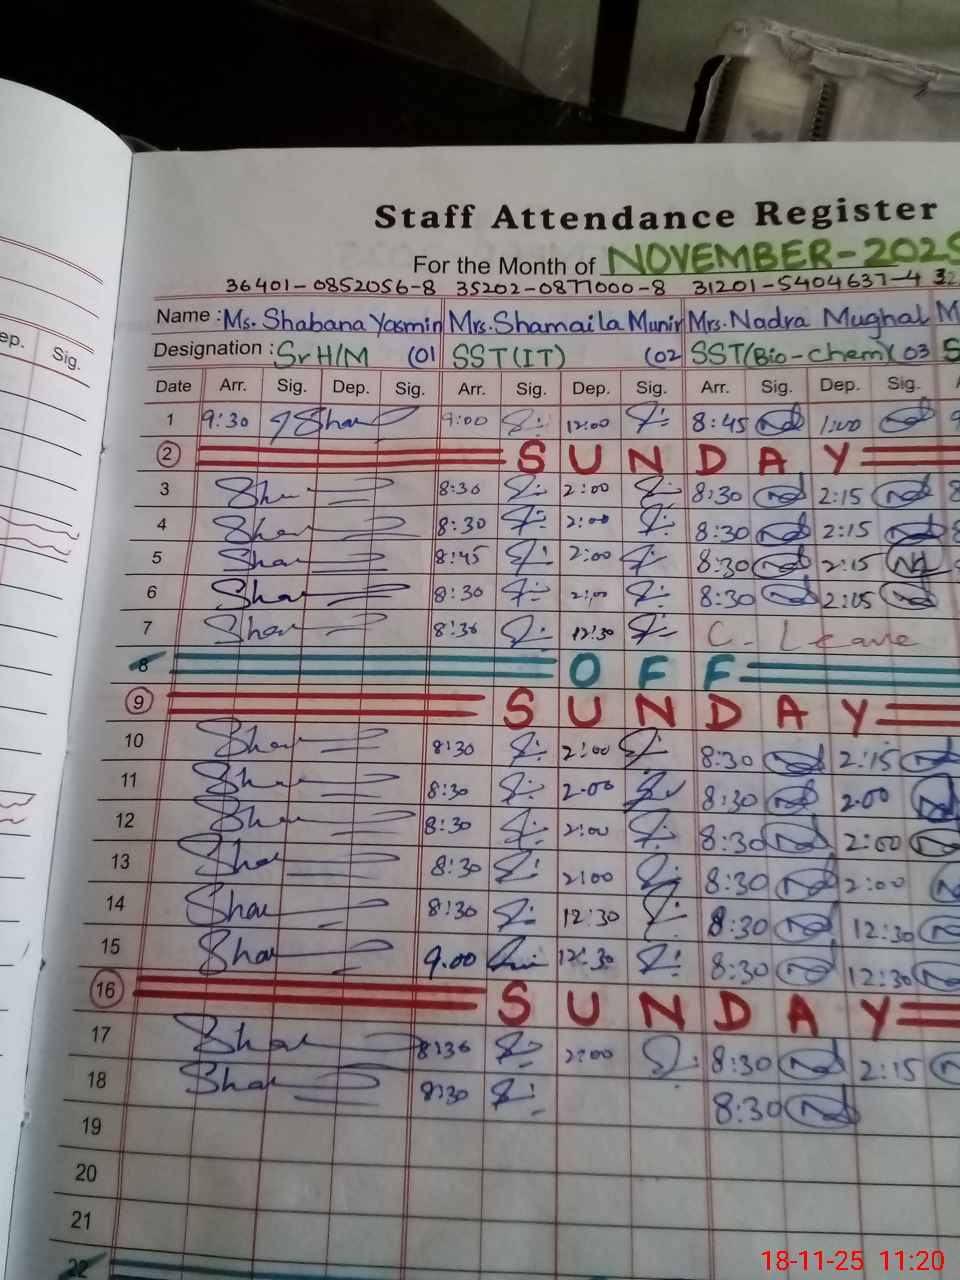 Staff Attendance Register
For the Month of NOVEMBER-2025
36401-0852056-8 35202-0877000-8 31201-5404637-4 3
Name : Ms. Shabana Yasmin Mrs. Shamaila Munir Mrs. Nadra Mughal M
Designation : Sr H/M (01 SST (IT) (02 SST (Bio-chem) (03 S
ep. Sig.
Date Arr. Sig. Dep. Sig. Arr. Sig. Dep. Sig. Arr. Sig. Dep. Sig.
1 9:30 Shan 9:00 12:00 8:45 1:00
2 SUNDAY
3 Sha 8:30 2:00 8:30 2:15
4 Sha 8:30 2:00 8:30 2:15
5 Sha 8:45 2:00 8:30 2:15
6 Sha 8:30 2:00 8:30 2:05
7 Sha 8:30 12:30 C. Leave
8 OFF
9 SUNDAY
10 Sha 8:30 2:00 8:30 2:15
11 Sha 8:30 2.00 8:30 2.00
12 Sha 8:30 2:00 8:30 2:00
13 Sha 8:30 2:00 8:30 2:00
14 Sha 8:30 12:30 8:30 12:30
15 Sha 9.00 12:30 8:30 12:30
16 SUNDAY
17 Sha 8:30 2:00 8:30 2:15
18 Sha 8:30 8:30
19
20
21
22
18-11-25 11:20